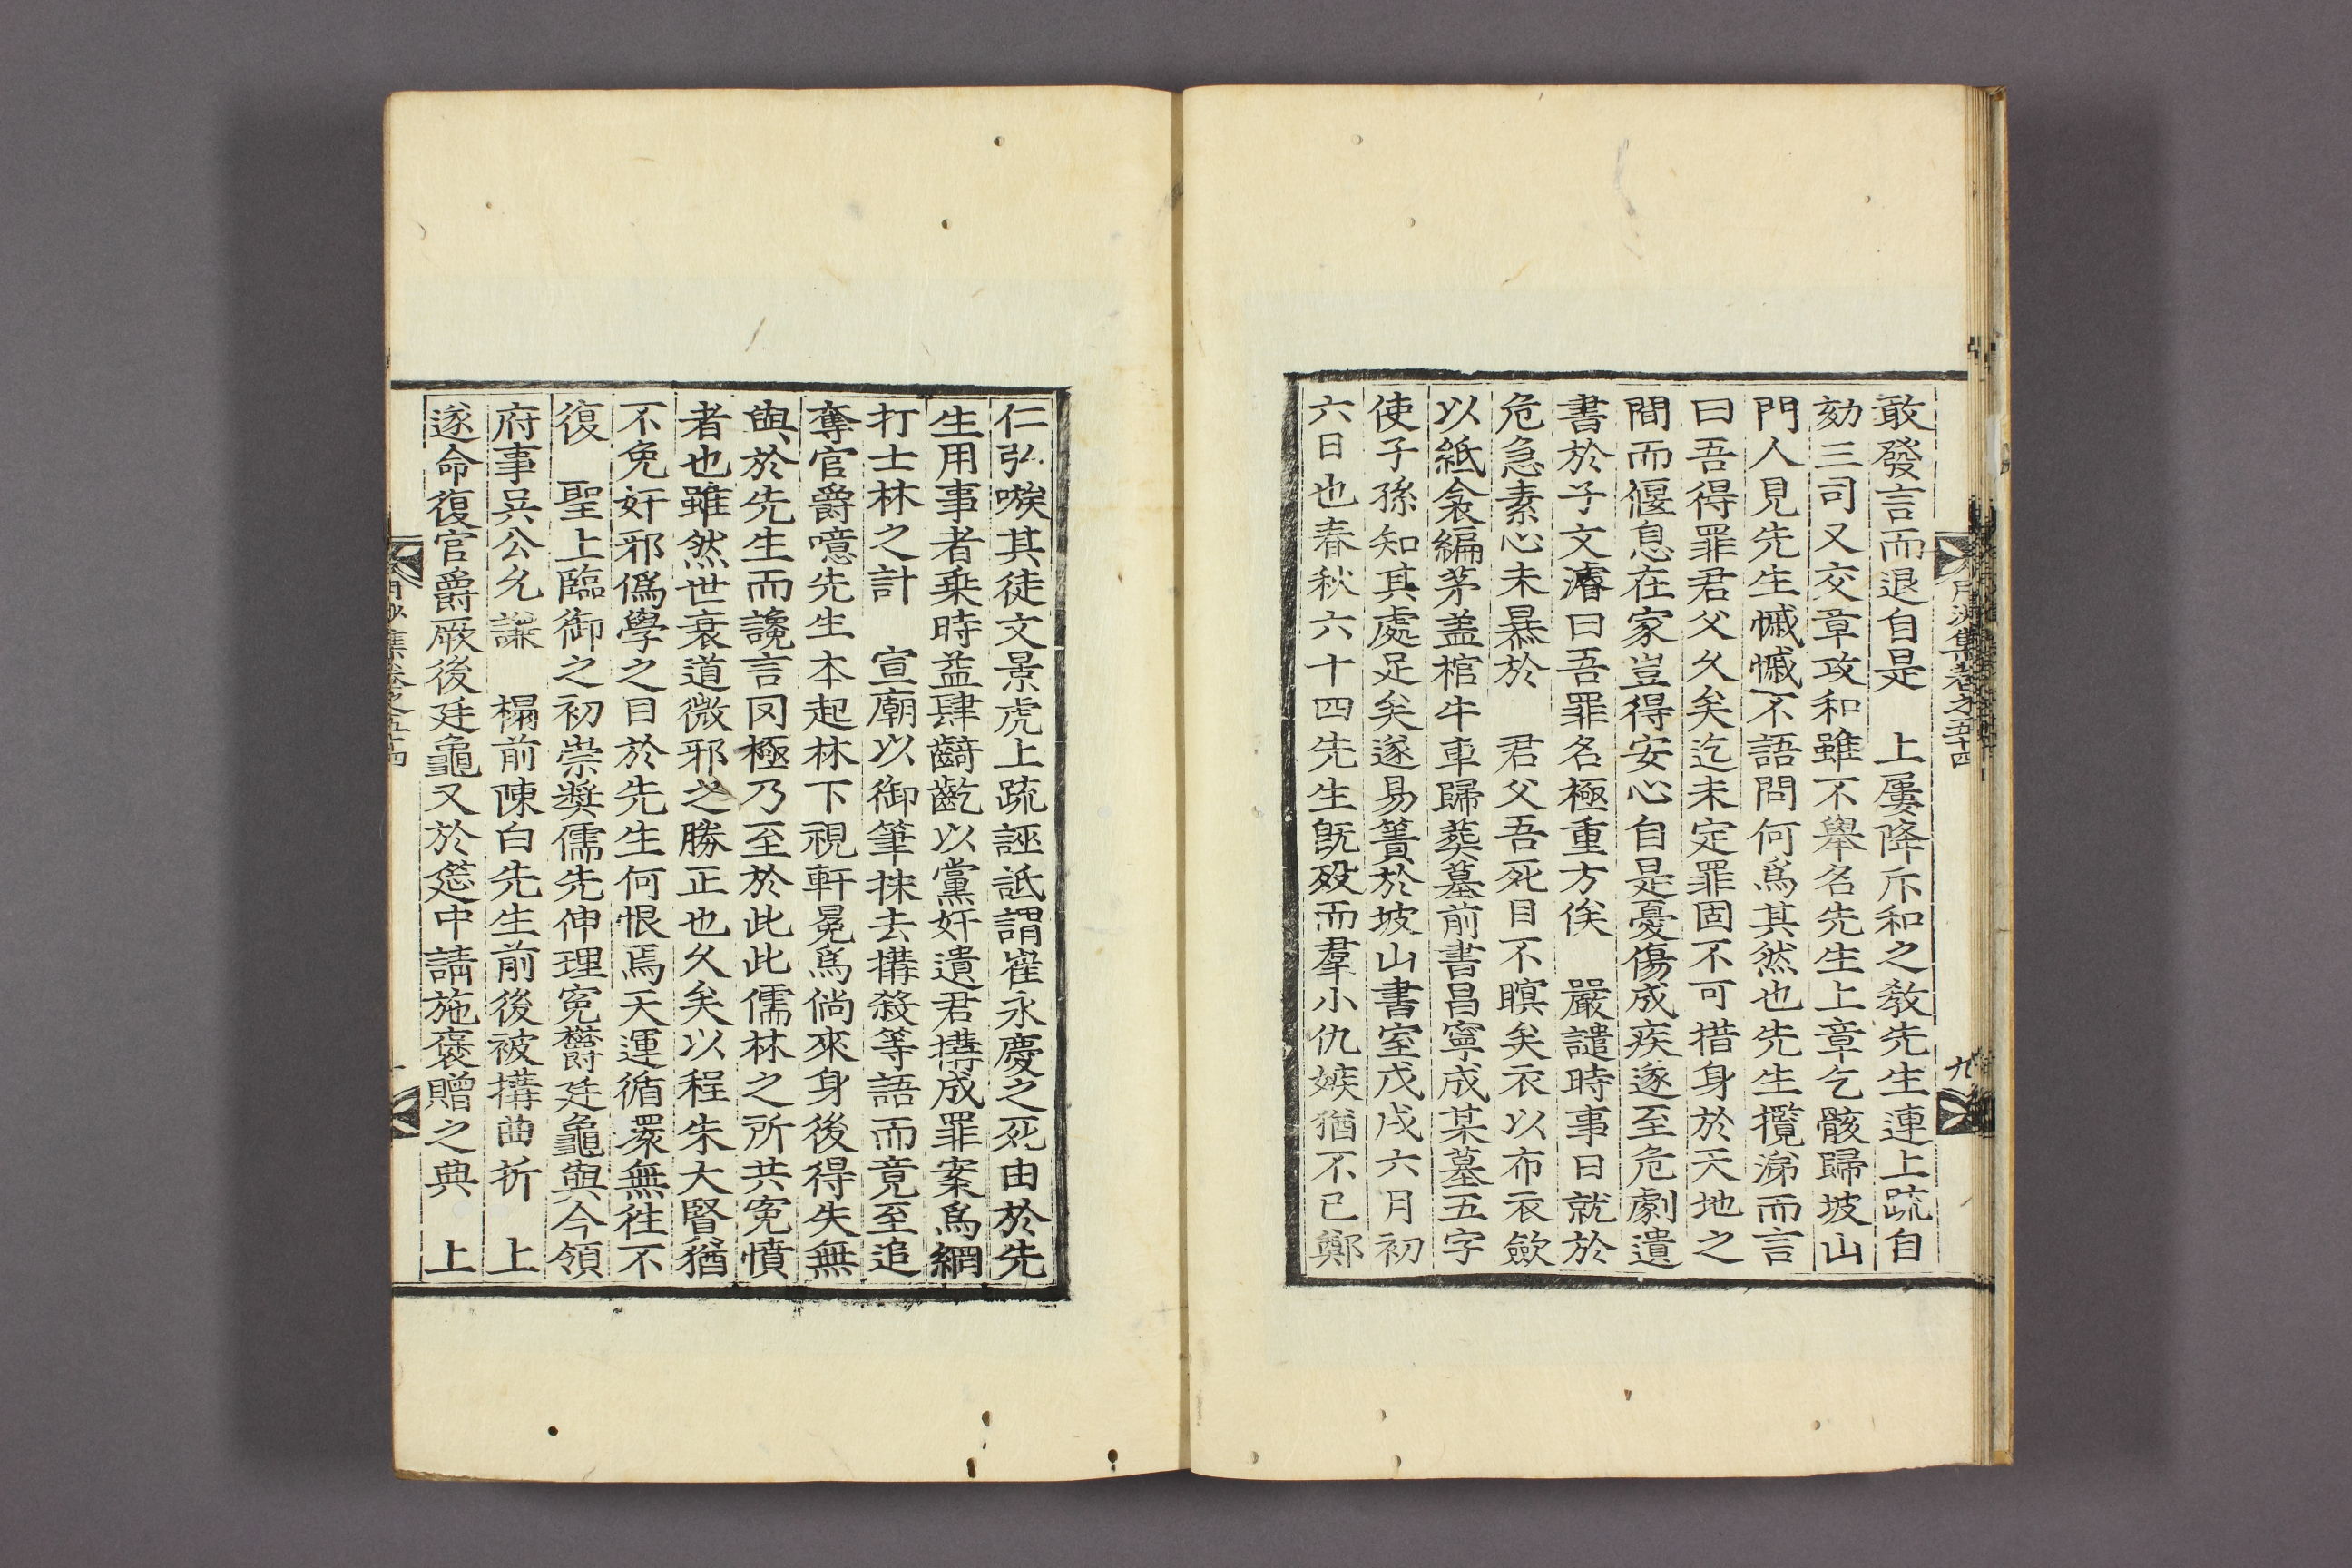 敢發言而退自是　上屢降斥和之教先生連上疏自
劾三司又交章攻和雖不舉名先生上章乞骸歸坡山
門人見先生慽慽不語問何爲其然也先生攬涕而言
曰吾得罪君父久矣迄未定罪固不可措身於天地之
間而偃息在家豈得安心自是憂傷成疾遂至危劇遺
書於子文濬曰吾罪名極重方俟　嚴譴時事日就於
危急素心未暴於　君父吾死目不瞑矣衣以布衣歛
以紙衾編茅盖棺牛車歸葬墓前書昌寧成某墓五字
使子孫知其處足矣遂易簀於坡山書室戊戌六月初
六日也春秋六十四先生旣歿而羣小仇嫉猶不已鄭
月沙集卷之五十四
九
仁弘嗾其徒文景虎上疏誣詆謂崔永慶之死由於先
生用事者乗時益肆齮齕以黨奸遺君搆成罪案爲網
打士林之計　宣廟以御筆抹去搆殺等語而竟至追
奪官爵噫先生本起林下視軒冕爲倘來身後得失無
與於先生而讒言罔極乃至於此此儒林之所共寃憤
者也雖然世衰道微邪之勝正也久矣以程朱大賢猶
不免奸邪僞學之目於先生何恨焉天運循環無往不
復　聖上臨御之初崇奬儒先伸理寃欝廷龜與今領
府事呉公允謙　榻前陳白先生前後被搆曲折　上
遂命復官爵厥後廷龜又於筵中請施褒贈之典　上
月沙集卷之五十四